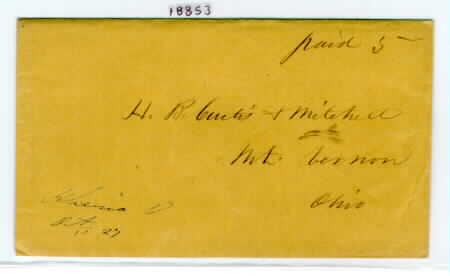 18853
paid 5
H. B. Curtis & Mitchell
Mt. Vernon
Ohio
Oct. 27